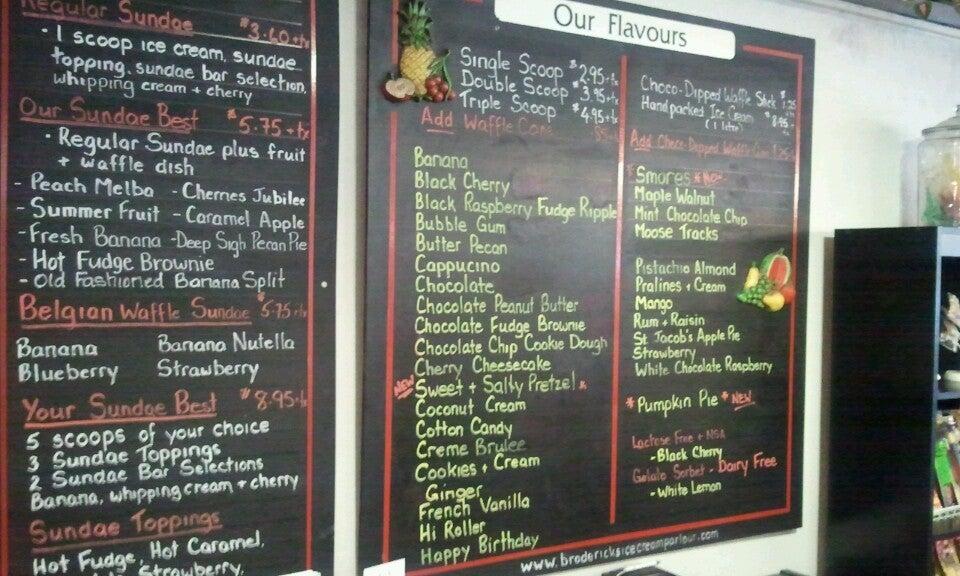 Regular Sundae $3.60+tx
• 1 scoop ice cream, sundae
topping, sundae bar selection,
whipping cream + cherry
Our Sundae Best $5.75+tx
• Regular Sundae plus fruit
+ waffle dish
- Peach Melba - Cherries Jubilee
- Summer Fruit - Caramel Apple
- Fresh Banana - Deep Sigh Pecan Pie
- Hot Fudge Brownie
- Old Fashioned Banana Split
Belgian Waffle Sundae $5.75+tx
Banana Banana Nutella
Blueberry Strawberry
Your Sundae Best $8.95+tx
5 scoops of your choice
3 Sundae Toppings
2 Sundae Bar Selections
Banana, whipping cream + cherry
Sundae Toppings
Hot Fudge, Hot Caramel,
Strawberry,
Our Flavours
Single Scoop $2.95+tx
Double Scoop $3.95+tx
Triple Scoop $4.95+tx
Add Waffle Cone
Banana
Black Cherry
Black Raspberry Fudge Ripple
Bubble Gum
Butter Pecan
Cappucino
Chocolate
Chocolate Peanut Butter
Chocolate Fudge Brownie
Chocolate Chip Cookie Dough
Cherry Cheesecake
NEW Sweet + Salty Pretzel *
Coconut Cream
Cotton Candy
Creme Brulee
Cookies + Cream
Ginger
French Vanilla
Hi Roller
Happy Birthday
Choco-Dipped Waffle Stick $1.25
Handpacked Ice Cream $8.95
(1 litre)
Add Choco-Dipped Waffle Cone
*Smores *NEW
Maple Walnut
Mint Chocolate Chip
Moose Tracks
Pistachio Almond
Pralines + Cream
Mango
Rum + Raisin
St Jacob's Apple Pie
Strawberry
White Chocolate Raspberry
*Pumpkin Pie* NEW
Lactose Free + NSA
- Black Cherry
Gelato Sorbet - Dairy Free
- White Lemon
www.brodericksicecreamparlour.com